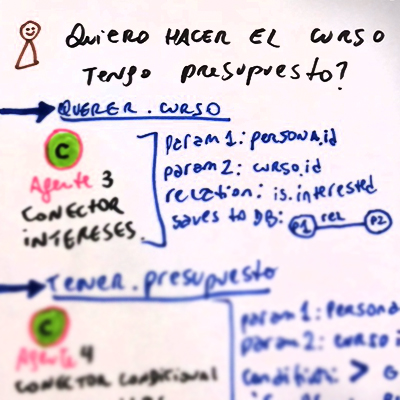 QUIERO HACER EL CURSO
TENGO PRESUPUESTO?
QUERER.CURSO
C
Agente 3
CONECTOR
INTERESES.
param1: persona.id
param2: curso.id
relation: is.interested
saves to DB: P1 rel P2
TENER.presupuesto
C
Agente 4
CONECTOR CONDICIONAL
param1: Persona
param2: curso i
condition: > G